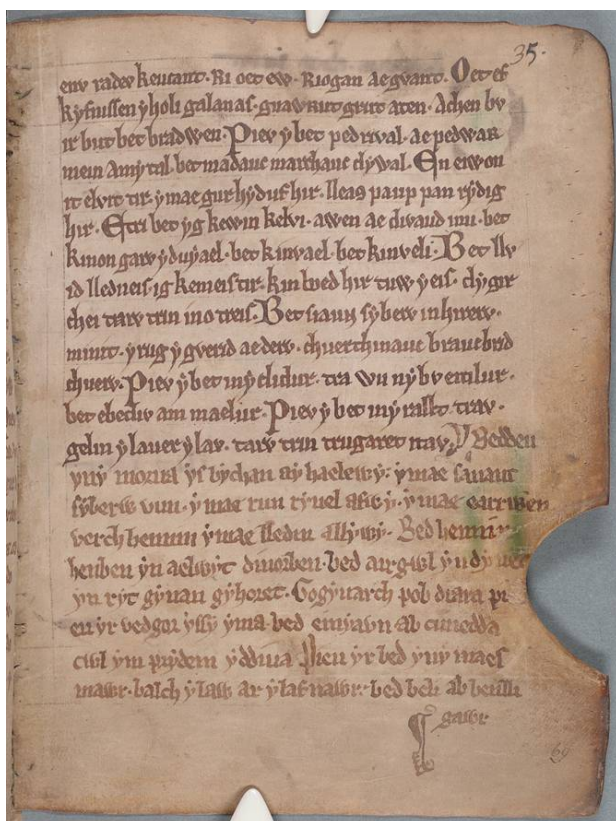 env rader keucant. Ri oet ew. Riogan ae gvant. Oet ef
kyfnissen ẏ holi galanas. guavrut grut aten. Achen bv
ir but bet bradwen. Piev ẏ bet pedrival. ae pedwar
mein amy tal. bet madauc marchauc dywal. En eiwon
it elvit tir. ẏ mae gur hẏduf hir. lleas paup pan rẏdig
hir. Etri bet ẏg kewin kelvi. awen ae divaud imi. bet
kinon garv ẏ duẏael. bet kinvael. bet kinveli. Bet llv
id lledneis ig kemeis tir. kin boed hir tuw ẏ eis. dẏgir
chei tarv trin ino treis. Bet siaun sẏberv in hirerv.
minit. ẏ rug ẏ gverid ae derv. chuerthinauc braucbrid
chuerv. Piev ẏ bet in ẏ clidur. tra wu nẏ bv eitilur.
bet ebediw am maelur. Piev ẏ bet in ẏr allt trav.
gelin ẏ lauer ẏ lav. tarv trin trugaret itav. Y Beddeu
ẏnẏ morva ẏs bẏchan aẏ haelewẏ. ẏ mae sanant
sẏberw vun. ẏ mae run rẏuel afwẏ. ẏ mae earrwen
verch hennin ẏ mae lledin allẏwẏ. Bed hennin
henben ẏn aelwẏt dinorben. bed airgwl ẏn dẏuet
ẏn rẏt gẏnan gẏhoret. Gogẏuarch pob diara pi
eu ẏr vedgor ẏssẏ ẏma bed einẏavn ab cunedda
cwl ẏm prẏdein ẏ ddiua Pieu ẏr bed ẏnẏ maes
mawr. balch ẏ law ar ẏ lafnawr. bed beli ab benlli
gawr
35.
69